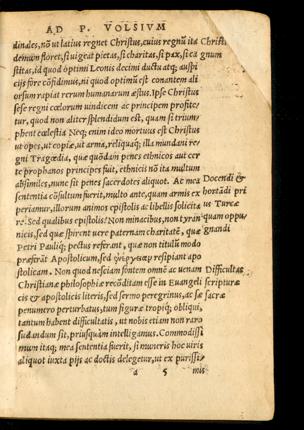 AD P. VOLSIVM
dinales, nō ut latius regnet Christus, cuius regnū ita Christi
demum floret, si uigeat pietas, si charitas, si pax, si ca gnum
stitas, id quod optimi Leonis decimi ductu atq; auspi
cijs fore cōfidimus, ni quod optimū est conantem ali
orsum rapiat rerum humanarum æstus. Ipse Christus
sese regni cœlorum uindicem ac principem profite/
tur, quod non aliter splendidum est, quam si trium/
phent cœlestia Neq; enim ideo mortuus est Christus
ut opes, ut copiæ, ut arma, reliquaq; illa mundani re/
gni Tragœdia, quæ quōdam penes ethnicos aut cer
te prophanos principes fuit, ethnicis nō ita multum
absimiles, nunc sit penes sacerdotes aliquot. Ac mea Docendi &
sententia cōsultum fuerit, multo ante, quam armis ex hortādi pri
periamur, illorum animos epistolis ac libellis solicita us Turcæ
re. Sed qualibus epistolis? Non minacibus, non tyran quam oppu/
nicis, sed quæ spirent uere paternam charitatē, quæ gnandi
Petri Pauliq; pectus referant, quæ non titulū modo
præferāt Apostolicum, sed resipiant apo
stolicam. Non quod nesciam fontem omnē ac uenam Difficultas
Christianæ philosophiæ recōditam esse in Euangeli scripturæ
cis & apostolicis literis, sed sermo peregrinus, ac sæ sacræ
penumero perturbatus, tum figuræ tropiq; obliqui,
tantum habent difficultatis, ut nobis etiam non raro
sudandum sit, priusquam intelligamus. Commodissi
mum itaq; mea sententia fuerit, si muneris hoc uiris
aliquot iuxta pijs ac doctis delegetur, ut ex purissi/
a 5 mis